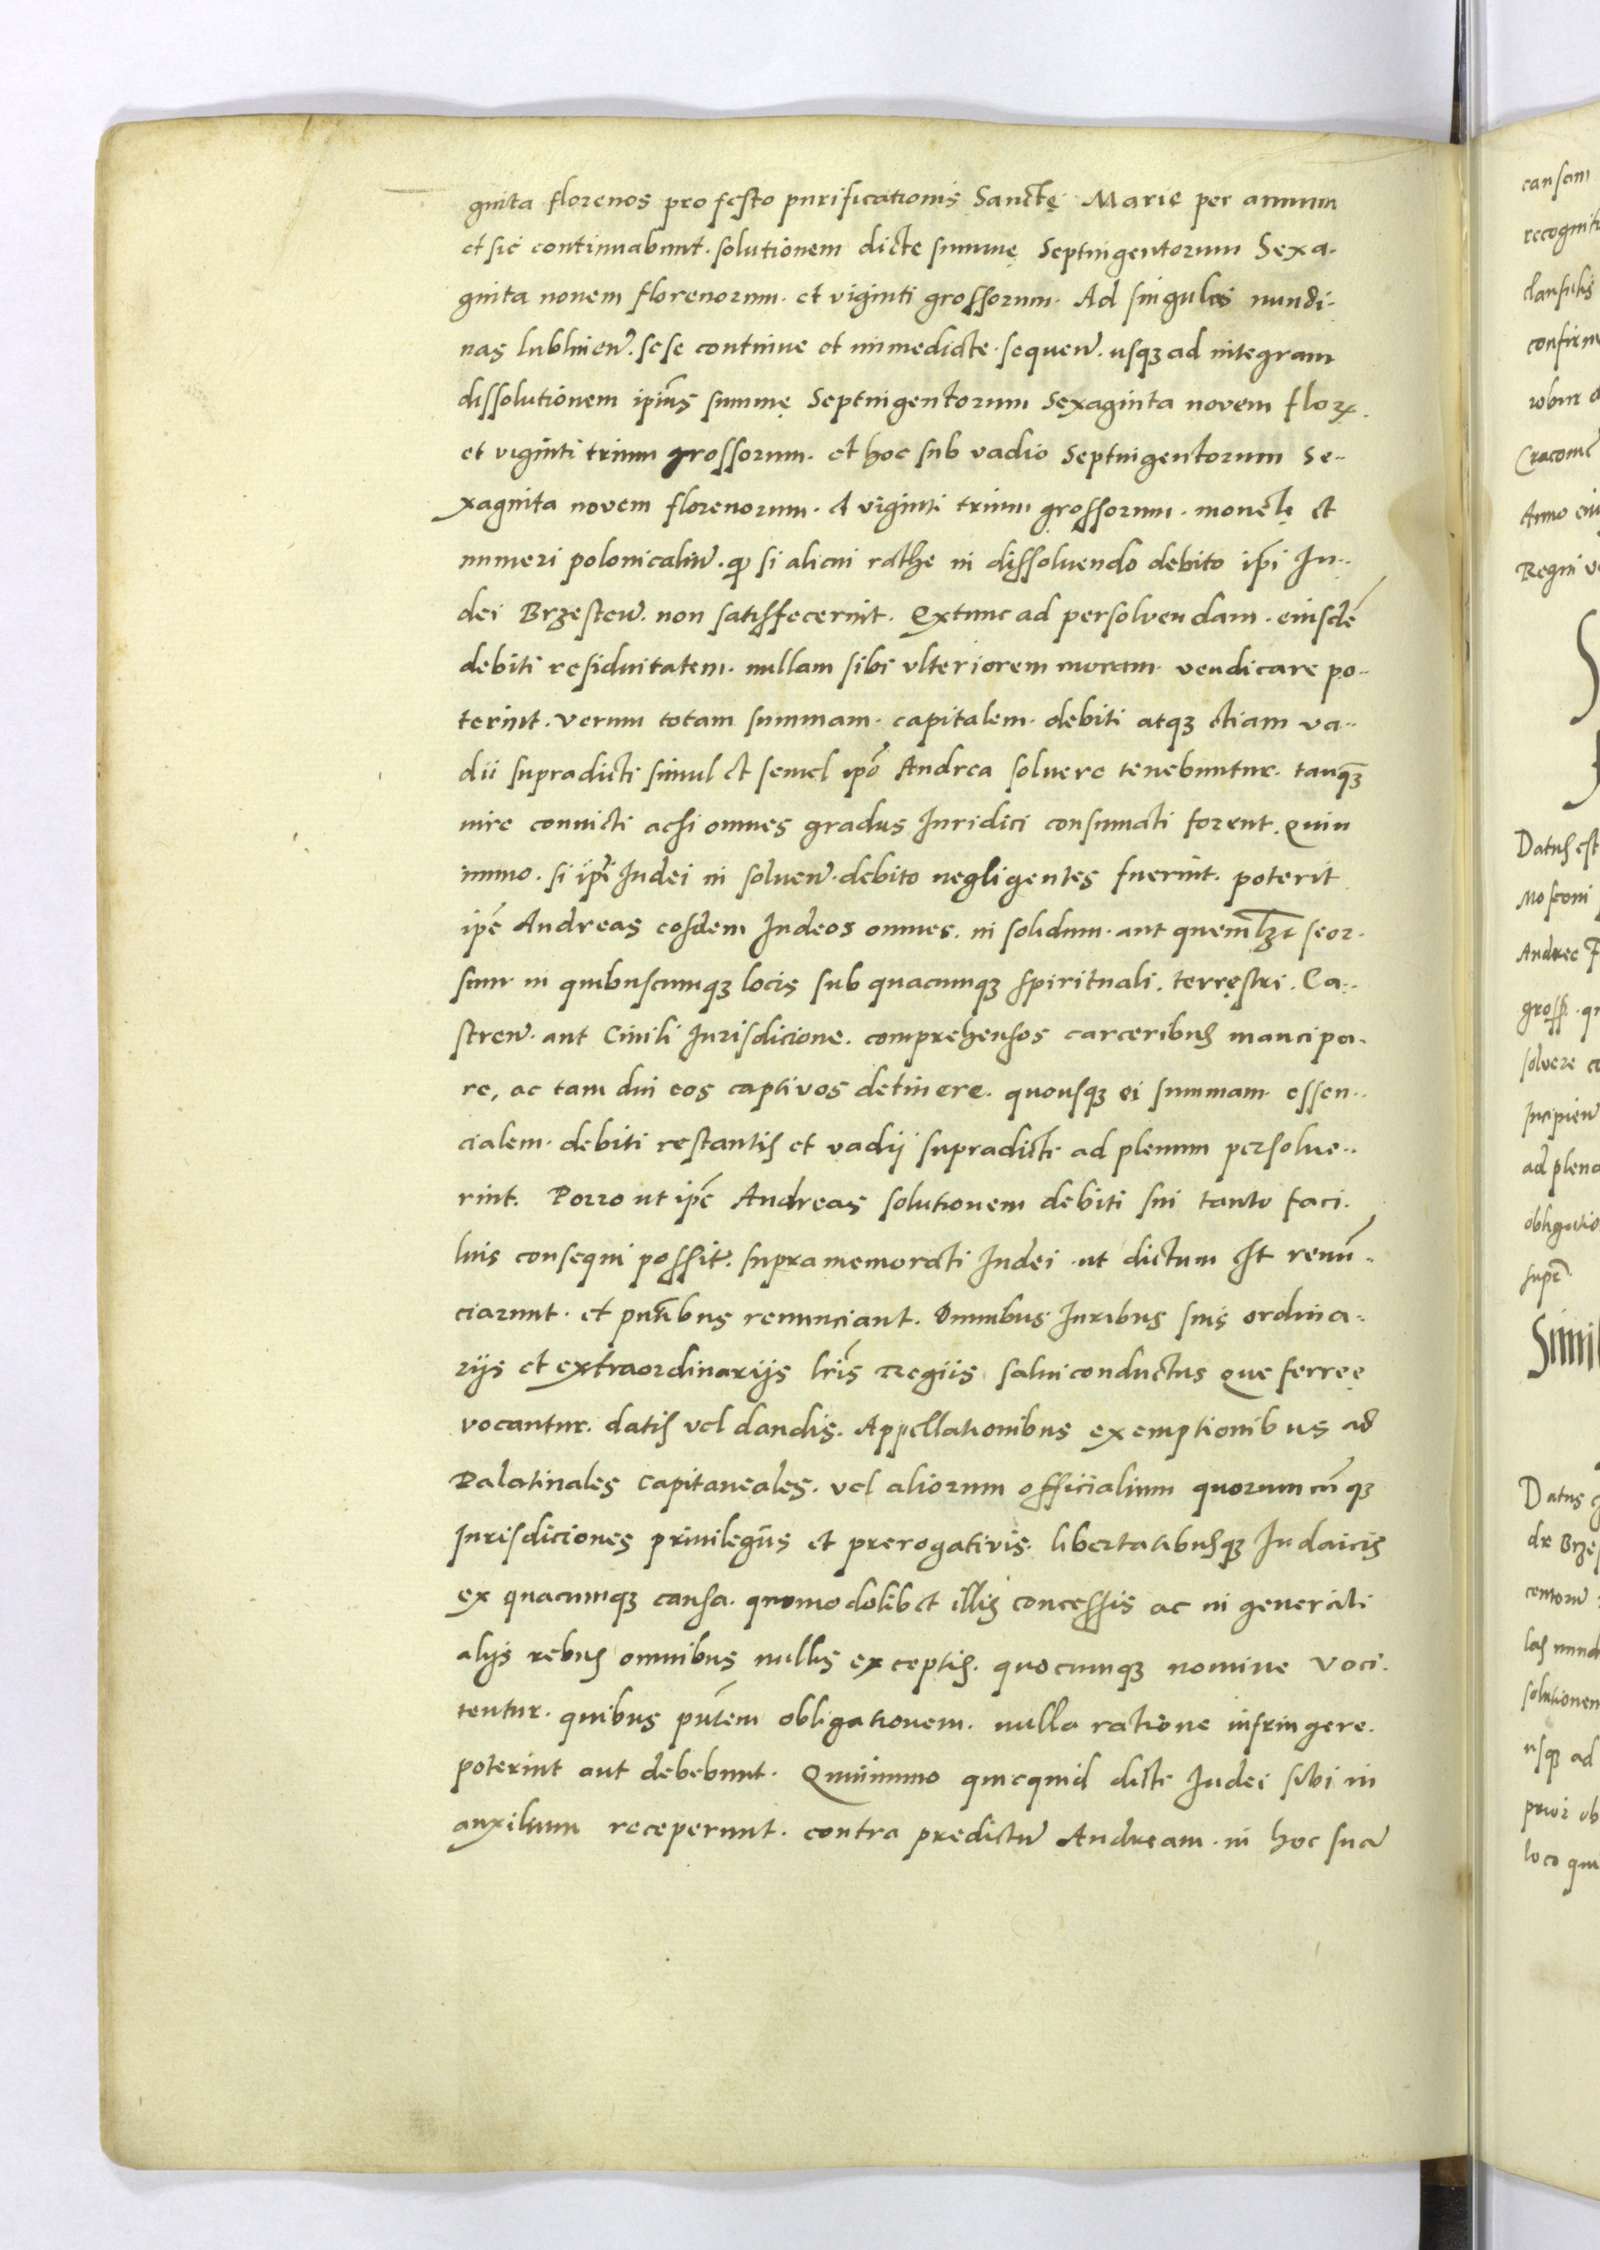 ginta florenos pro festo purificationis Sanctę Marie per annum
et sic continuabunt. solutionem dicte summę Septuigentorum Sexa-
ginta novem florenorum. et viginti grossorum. Ad singulas nundi-
nas lublinen̄. sese continue et immediate. sequen̄. usq3 ad integram
dissolutionem ip̄ius summę Septuigentorum Sexaginta novem flor.
et viginti trium grossorum. et hoc sub vadio Septuigentorum Se-
xaginta novem florenorum. et viginti trium grossorum. monetę et
numeri polonicaliū. qƺ si alicui rathe in dissolvendo debito ip̄i Ju-
dei Brzesten̄. non satisfecerint. Extunc ad persolvendam. eiusdē
debiti residuitatem. nullam sibi ulteriorem moram. vendicare po-
terint. Verum totam summam. capitalem. debiti atq3 etiam va-
dii supradicti simul et semel ip̄o Andrea solvere tenebuntur. tanq̄3
iure convicti acsi omnes gradus Iuridici consumati forent. Quin
immo. si ip̄i Iudei in solven̄. debito negligentes fuerint. poterit
ip̄e Andreas eosdem Iudeos omnes. in solidum. aut quemlꝫt seor-
sum in quibuscumq3 locis sub quacumq3 spirituali. terrestri. Ca-
stren̄. aut Civili Iurisdicione. comprehensos carceribus mancipa-
re, ac tam diu eos captivos detinere. quousq3 ei summam essen-
cialem. debiti restantis et vadij supradicti ad plenum persolve-
rint. Porro ut ip̄e Andreas solutionem debiti sui tanto faci-
lius consequi possit. supramemorati Iudei. ut dictum est renū-
ciarunt. et pn̄tibus renunciant. Omnibus Iuribus suis ordina-
rijs et extraordinarijs lr̄is Regiis salviconductus que ferreę
vocantur. datis vel dandis. Appellationibus exemptionibus ad
Palatinales Capitaneales. vel aliorum officialium quorumcūq3
Iurisdiciones privilegiis et prerogativis. libertatibusq3 Iudaicis
ex quacumq3 causa. quomodolibet illis concessis ac in generali
alijs rebus omnibus nullis exceptis. quocumq3 nomine voci-
tentur. quibus pn̄tem obligationem. nulla ratione infringere.
poterint aut debebunt. Quinimmo quicquid dicti Iudei sibi in
auxilium receperunt. contra predictū Andream. in hoc sua